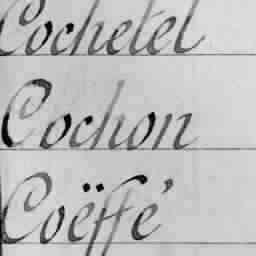 Cochetel
Cochon
Coëffé